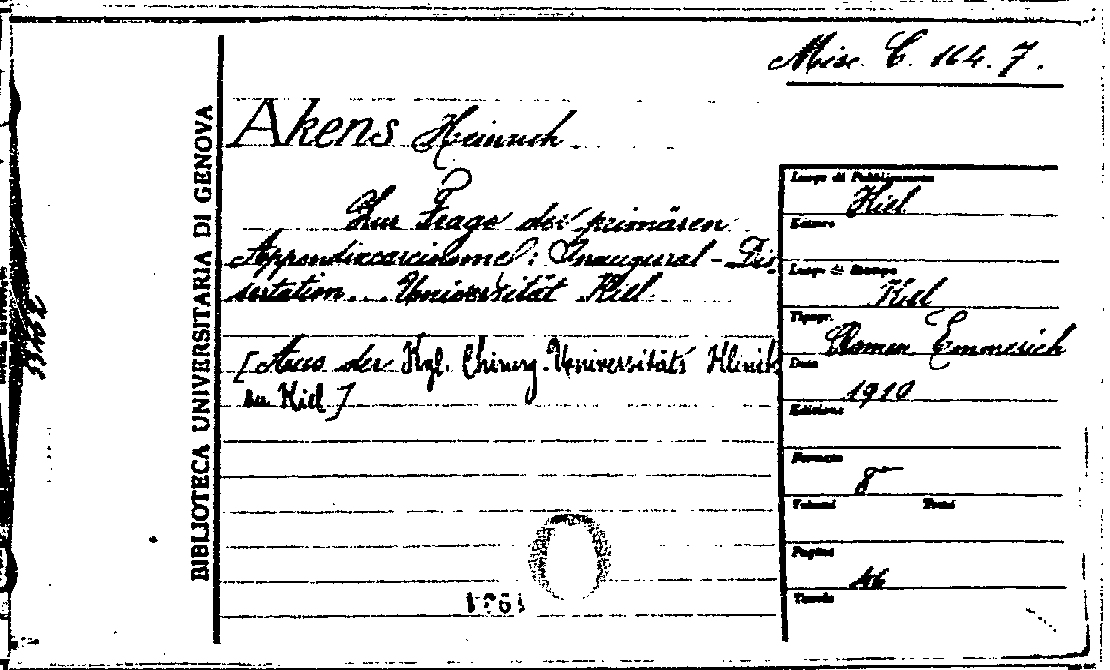 Misc. C. 164. 7.
BIBLIOTECA UNIVERSITARIA DI GENOVA
Akens Heinrich
Zur Frage der primären
Appendixcarcinome: Inaugural-Dis
sertation. Universität Kiel.
[Aus der Kgl. Chirurg. Universitäts Klinik
zu Kiel]
Luogo di Pubblicazione
Kiel
Editore
Luogo di Stampa
Kiel
Tipogr.
Emmerich
Data
1910
Edizione
Formato
8°
Volumi Tomi
Pagine
46
Tavole